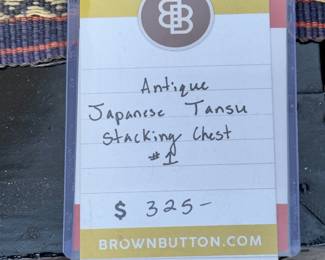 BB
Antique
Japanese Tansu
Stacking Chest
#1
$ 325-
BROWNBUTTON.COM